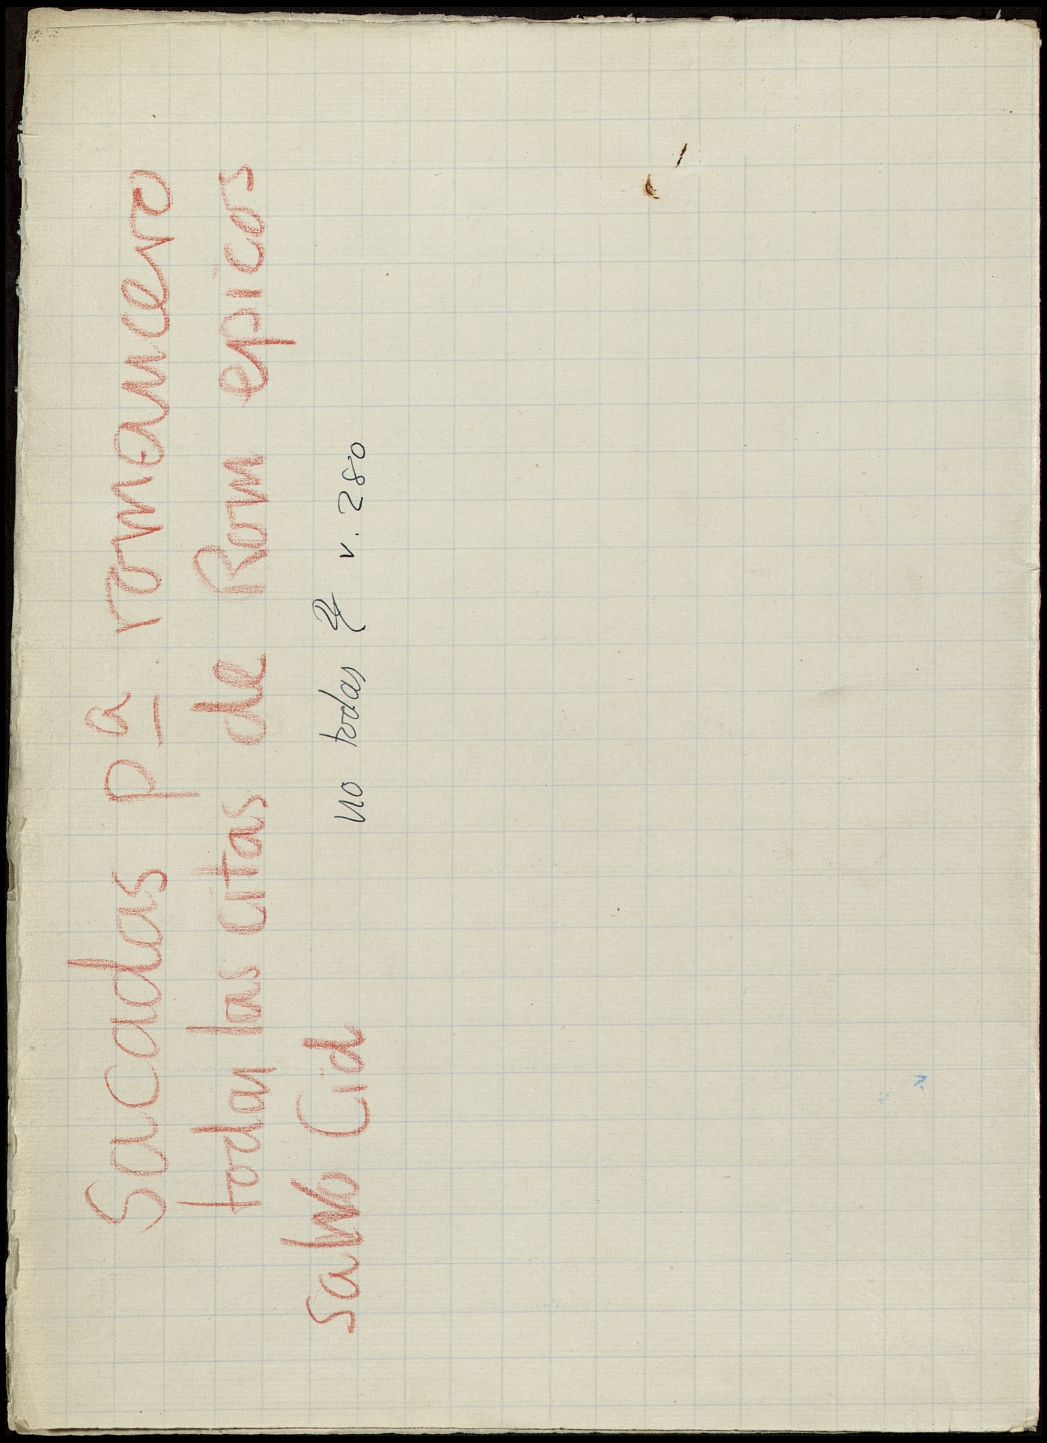 Sacadas pª romancero
todas las citas de Rom epicos
salvo Cid
no todas v. 280